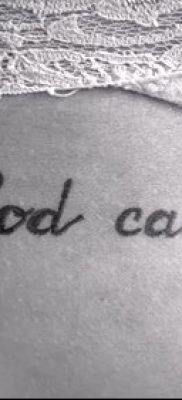 od ca